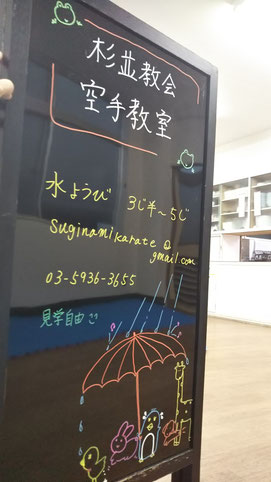 杉並教会
空手教室
水ようび 3じ半〜5じ
suginamikarate@
gmail.com
03-5936-3655
見学自由